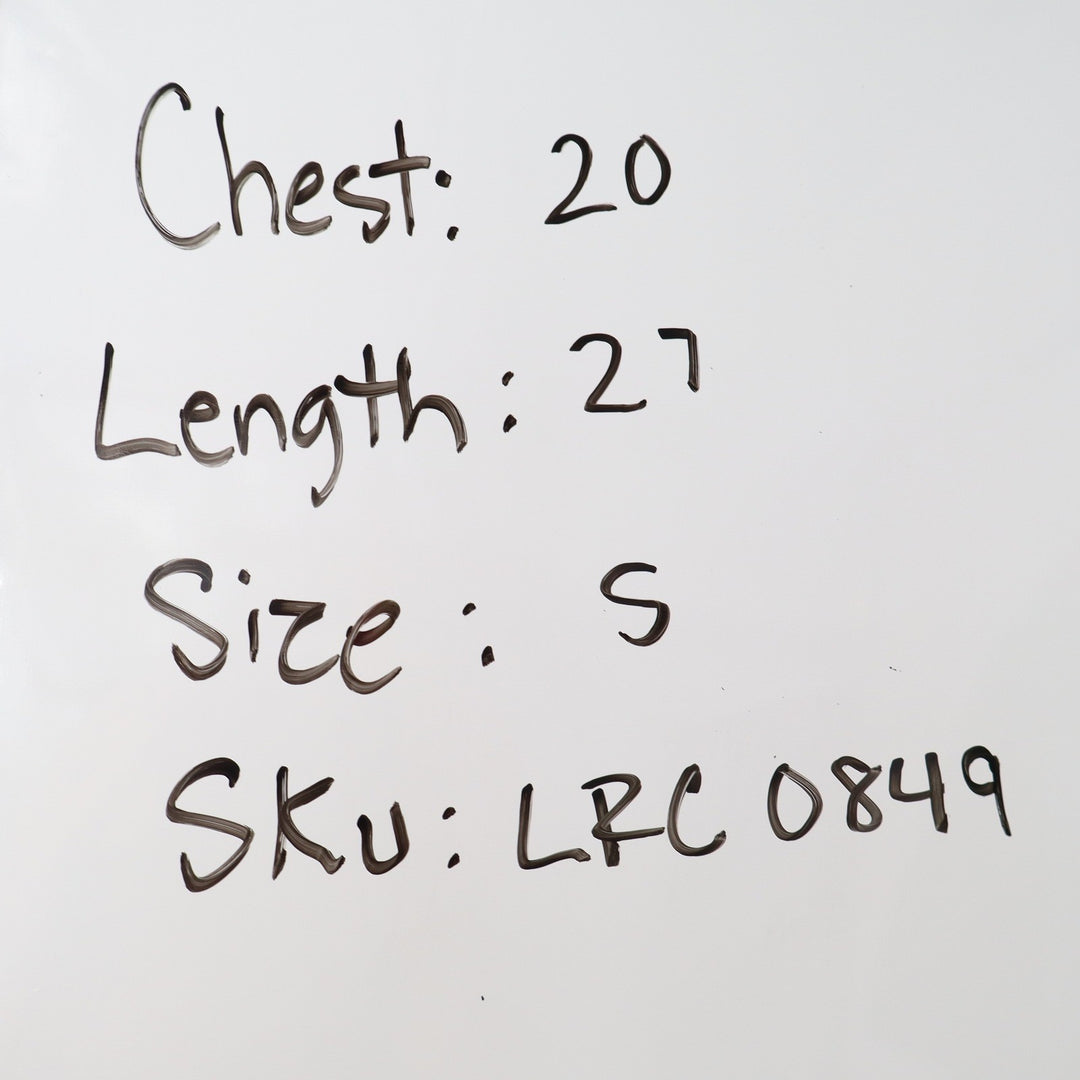 Chest: 20
Length: 27
Size: S
SKU: LRC 0849